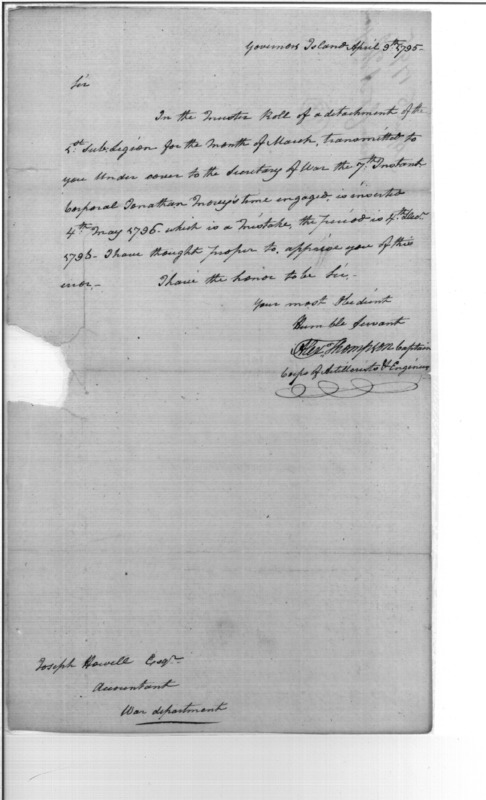 Governors Island April 9th 1795-
Sir
In the Muster Roll of a detachment of the
2nd Sub. Legion for the Month of March, transmitted to
you Under cover to the Secretary of War the 7th Instant
Corporal Jonathan Morey's time engaged, is inserted
4th May 1796- which is a Mistake, the period is 4th
1795- I have thought proper to, apprize you of this
error,- I have the honor to be Sir,-
Your most Obedient
Humble Servant
Alex. Thompson Captain
Corps of Artillerists & Engineers
Joseph Howell Esqr.
Accountant
War department